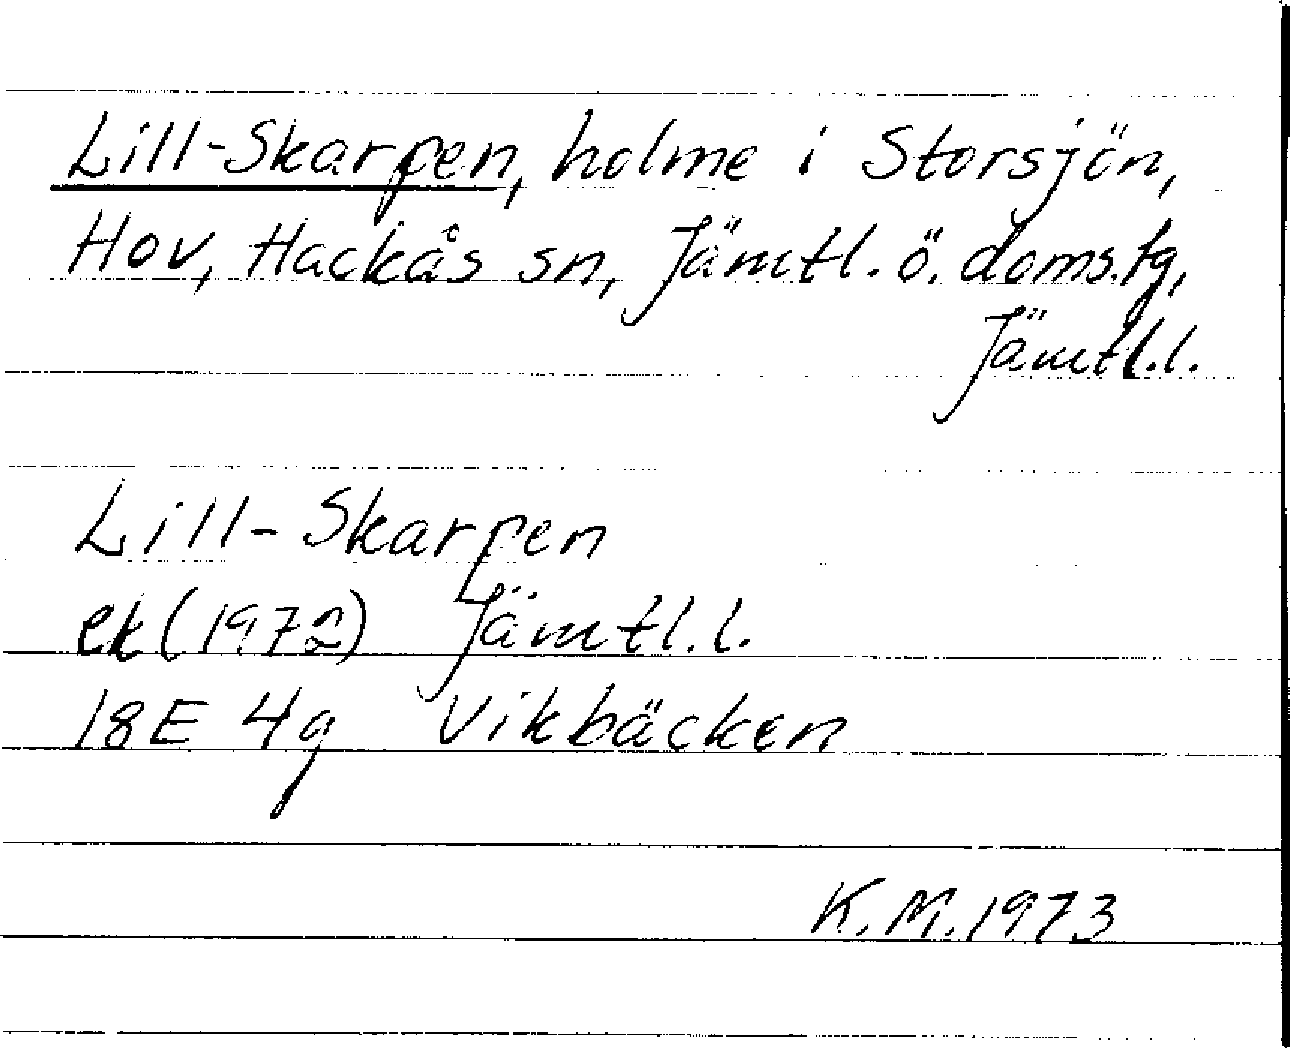 Lill-Skarpen, holme i Storsjön,
Hov, Hackås sn, Jämtl. ö. doms.tg,
Jämtl.l.
Lill-Skarpen
ek (1972) Jämtl.l.
18E 4g Vikbäcken
K.M. 1973